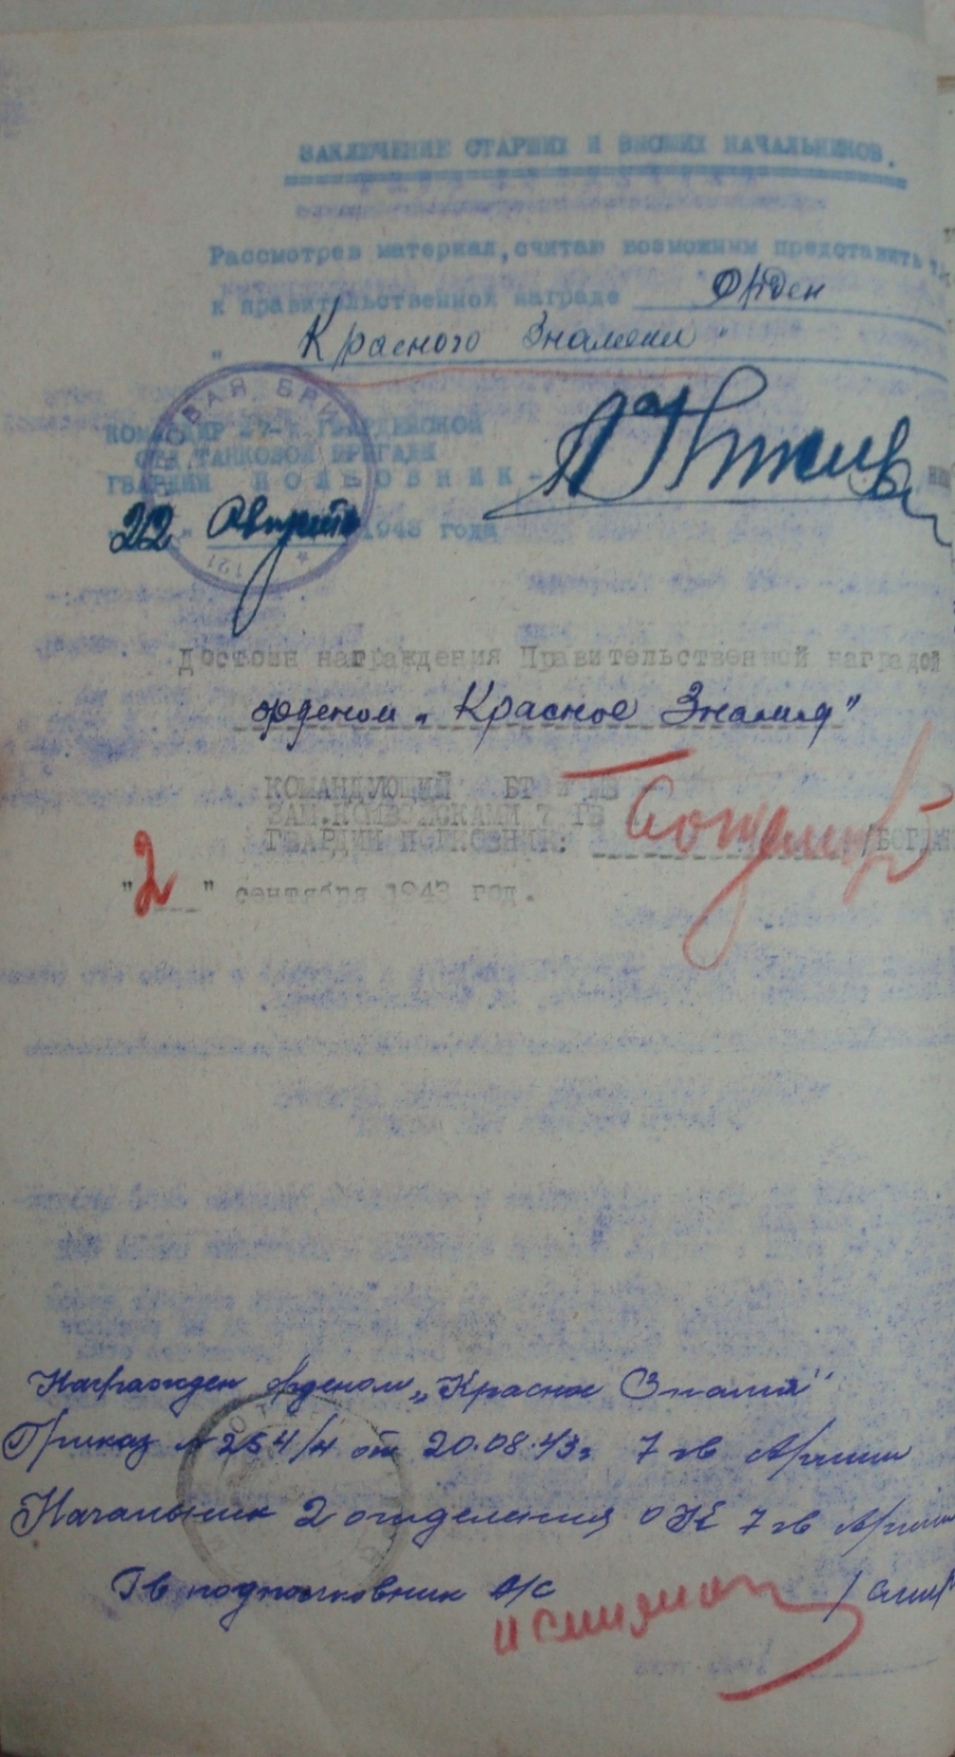 ЗАКЛЮЧЕНИЕ СТАРШИХ И ВЫСШИХ НАЧАЛЬНИКОВ.
Рассмотрев материал, считаю возможным представить
к правительственной награде Орден
" Красного Знамени "
КОМАНДИР 27-й ГВАРДЕЙСКОЙ
ОТД. ТАНКОВОЙ БРИГАДЫ
ГВАРДИИ ПОЛКОВНИК-
"22" Августа 1943 года
Достоин награждения Правительственной наградой
орденом „Красное Знамя"
КОМАНДУЮЩИЙ БТ и МВ
ЗАМ.КОМВОЙСКАМИ 7 ГВ
ГВАРДИИ ПОЛКОВНИК: /БОГДАН
"2" сентября 1943 год.
Награжден орденом „Красное Знамя"
Приказ № 254/н от 20.08.43г 7 гв Армии
Начальник 2 отделения ОК 7 гв Армии
Гв подполковник а/с